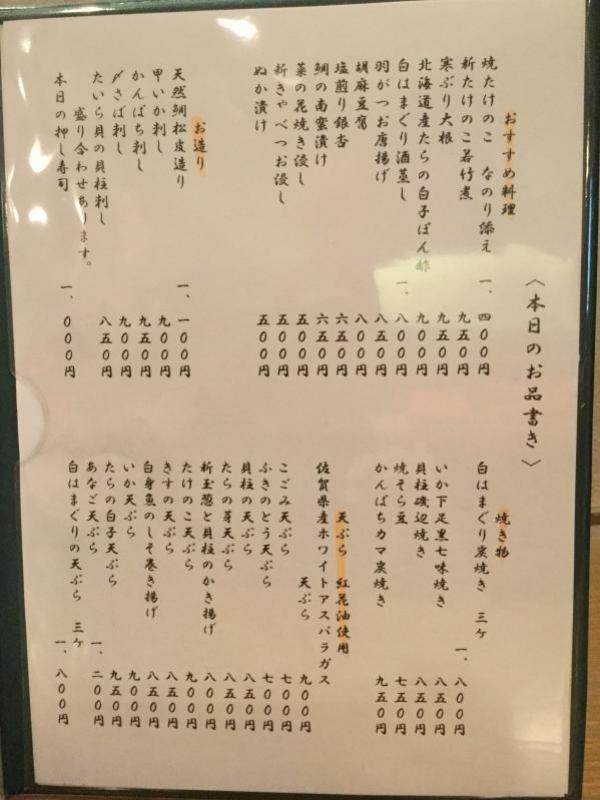 〈本日のお品書き〉
おすすめ料理
焼たけのこ なのり添え 一、四〇〇円
新たけのこ若竹煮 九五〇円
寒ぶり大根 九五〇円
北海道産たらの白子ぽん酢 九〇〇円
白はまぐり酒蒸し 一、八〇〇円
羽がつお唐揚げ 八五〇円
胡麻豆腐 八〇〇円
塩煎り銀杏 六五〇円
鯛の南蛮漬け 六五〇円
菜の花焼き浸し 五〇〇円
新きゃべつお浸し 五〇〇円
ぬか漬け 五〇〇円
お造り
天然鯛松皮造り 一、一〇〇円
甲いか刺し 九〇〇円
かんぱち刺し 九五〇円
〆さば刺し 九〇〇円
たいら貝の貝柱刺し 八五〇円
盛り合わせあります。
本日の押し寿司 一、〇〇〇円
焼き物
白はまぐり炭焼き 三ケ 一、八〇〇円
いか下足黒七味焼き 八五〇円
貝柱磯辺焼き 八五〇円
焼そら豆 七五〇円
かんぱちカマ炭焼き 九五〇円
天ぷら 紅花油使用
佐賀県産ホワイトアスパラガス
天ぷら 九〇〇円
こごみ天ぷら 七〇〇円
ふきのとう天ぷら 七〇〇円
貝柱の天ぷら 八五〇円
たらの芽天ぷら 八五〇円
新玉葱と貝柱のかき揚げ 八〇〇円
たけのこ天ぷら 九〇〇円
きすの天ぷら 八五〇円
白身魚のしそ巻き揚げ 八五〇円
いか天ぷら 九〇〇円
たらの白子天ぷら 九五〇円
あなご天ぷら 一、二〇〇円
白はまぐりの天ぷら 三ケ 一、八〇〇円